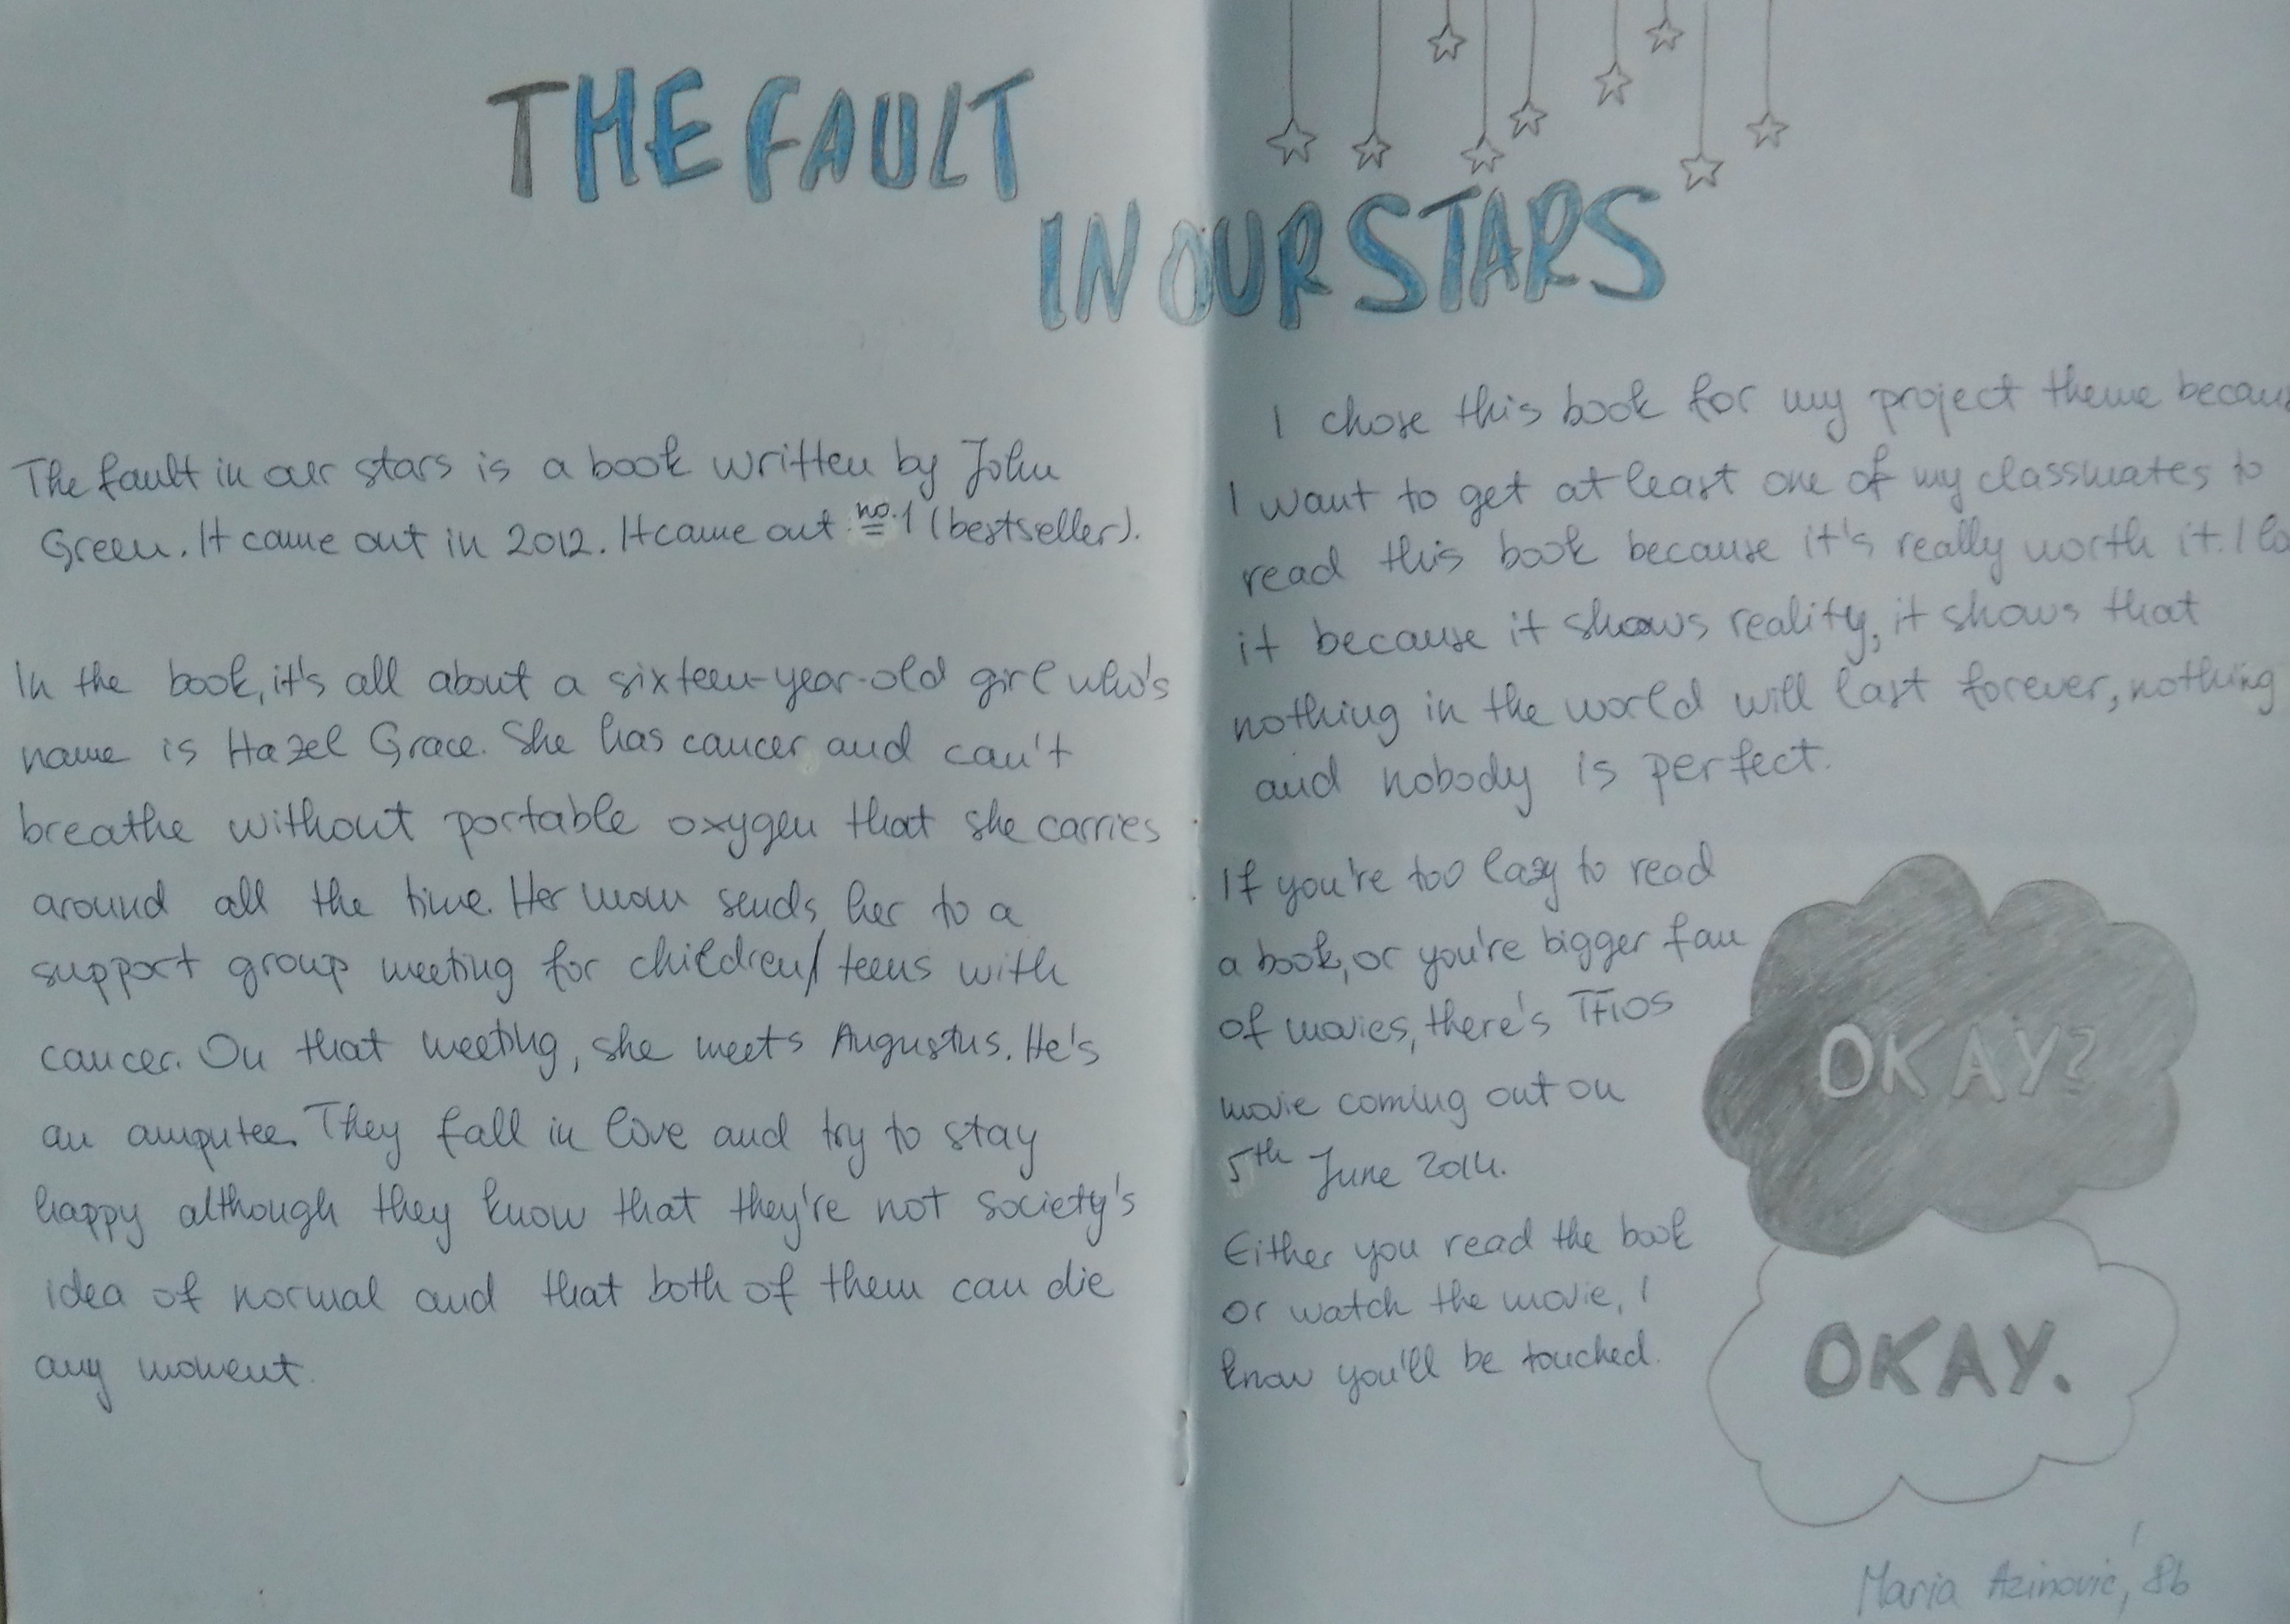 THE FAULT
IN OUR STARS
The fault in our stars is a book written by John
Green. It came out in 2012. It came out no. 1 (bestseller).
In the book, it's all about a sixteen-year-old girl who's
name is Hazel Grace. She has cancer and can't
breathe without portable oxygen that she carries
around all the time. Her mom sends her to a
support group meeting for children/teens with
cancer. On that meeting, she meets Augustus. He's
an amputee. They fall in love and try to stay
happy although they know that they're not society's
idea of normal and that both of them can die
any moment.
I chose this book for my project theme becaus
I want to get at least one of my classmates to
read this book because it's really worth it. I lo
it because it shows reality, it shows that
nothing in the world will last forever, nothing
and nobody is perfect.
If you're too lazy to read
a book, or you're bigger fan
of movies, there's TFIOS
movie coming out on
5th June 2014.
Either you read the book
or watch the movie, I
know you'll be touched.
OKAY?
OKAY.
Maria Azinović, 8b